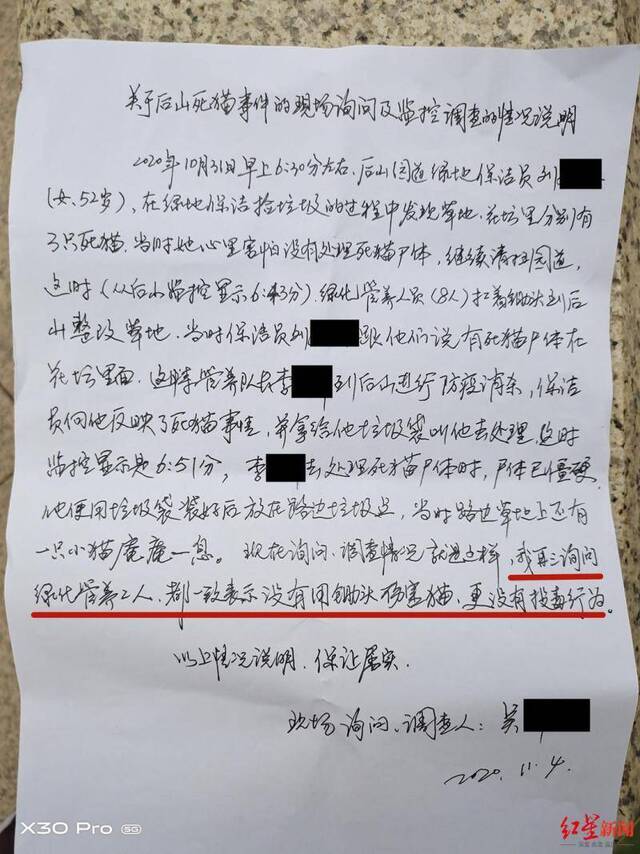 关于后山死猫事件的现场询问及监控调查的情况说明
2020年10月31日早上6:30分左右,后山园道绿地保洁员刘
(女、52岁),在绿地保洁捡垃圾的过程中发现草地、花坛里分别有
了只死猫,当时她心里害怕没有处理死猫尸体,继续清扫园道,
这时(从后山监控显示6:43分)绿化管养人员(8人)扛着锄头到后
山整改草地,当时保洁员刘 跟他们说有死猫尸体在
花坛里面,这时管养队长李 到后山进行防疫消杀,保洁
员向他反映了死猫事情,并拿给他垃圾袋叫他去处理,这时
监控显示是6:51分,李 去处理死猫尸体时,尸体已僵硬,
他使用垃圾袋装好后放在路边垃圾点,当时路边草地上还有
一只小猫鹿鹿一息。现在询问、调查情况就是这样,我再三询问
绿化管养工人,都一致表示没有用锄头伤害猫,更没有投毒行为。
以上情况说明,保证属实.
现场询问、调查人:吴
2020.11.4.
X30 Pro 5G
红星新闻